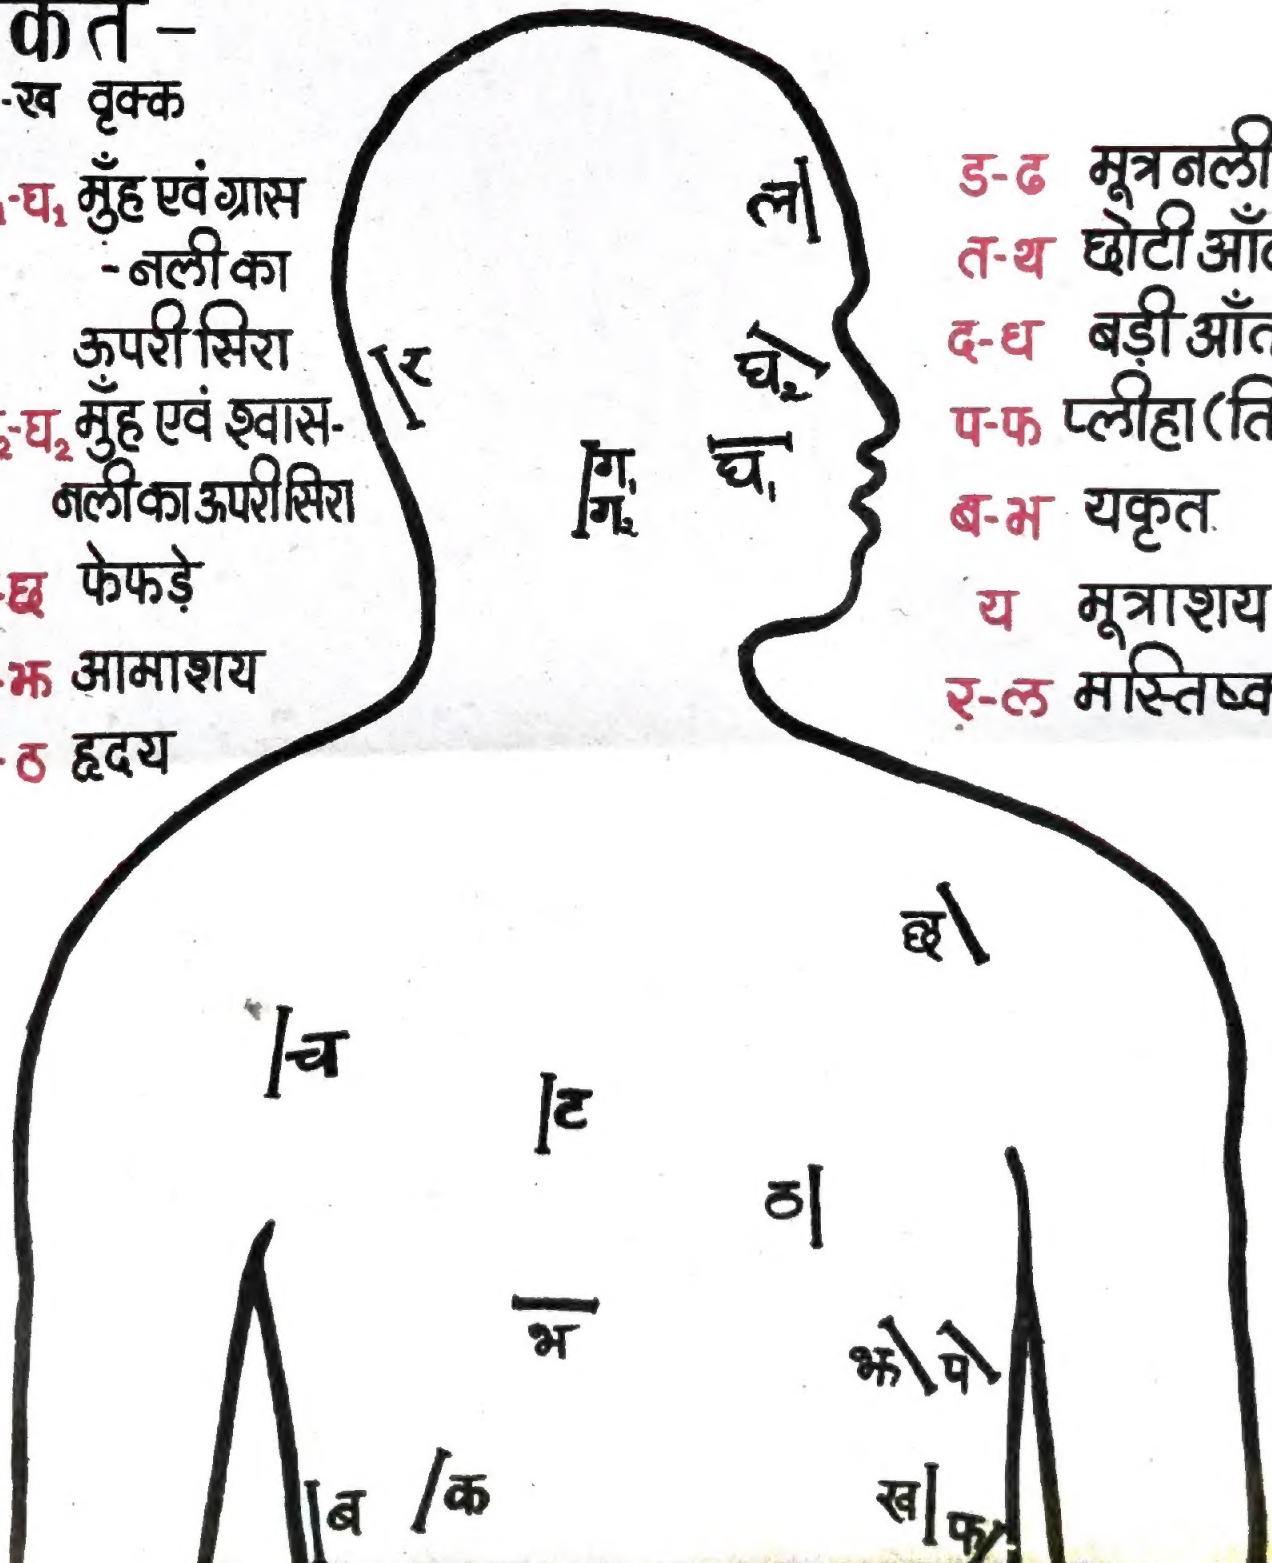 कत -
-ख वृक्क
-घ₁ मुँह एवं ग्रास
-नली का
ऊपरी सिरा
-घ₂ मुँह एवं श्वास-
नली का ऊपरी सिरा
-छ फेफड़े
-झ आमाशय
-ठ हृदय
ड-ढ मूत्र नली
त-थ छोटी
द-ध बड़ी
प-फ प्लीहा (
ब-भ यकृत
य मूत्राशय
र-ल मस्तिष्क
ल
र
घ₂
घ₁
ग₁
ग₂
छ
च
ट
ठ
भ
झ
प
ब
क
ख
फ